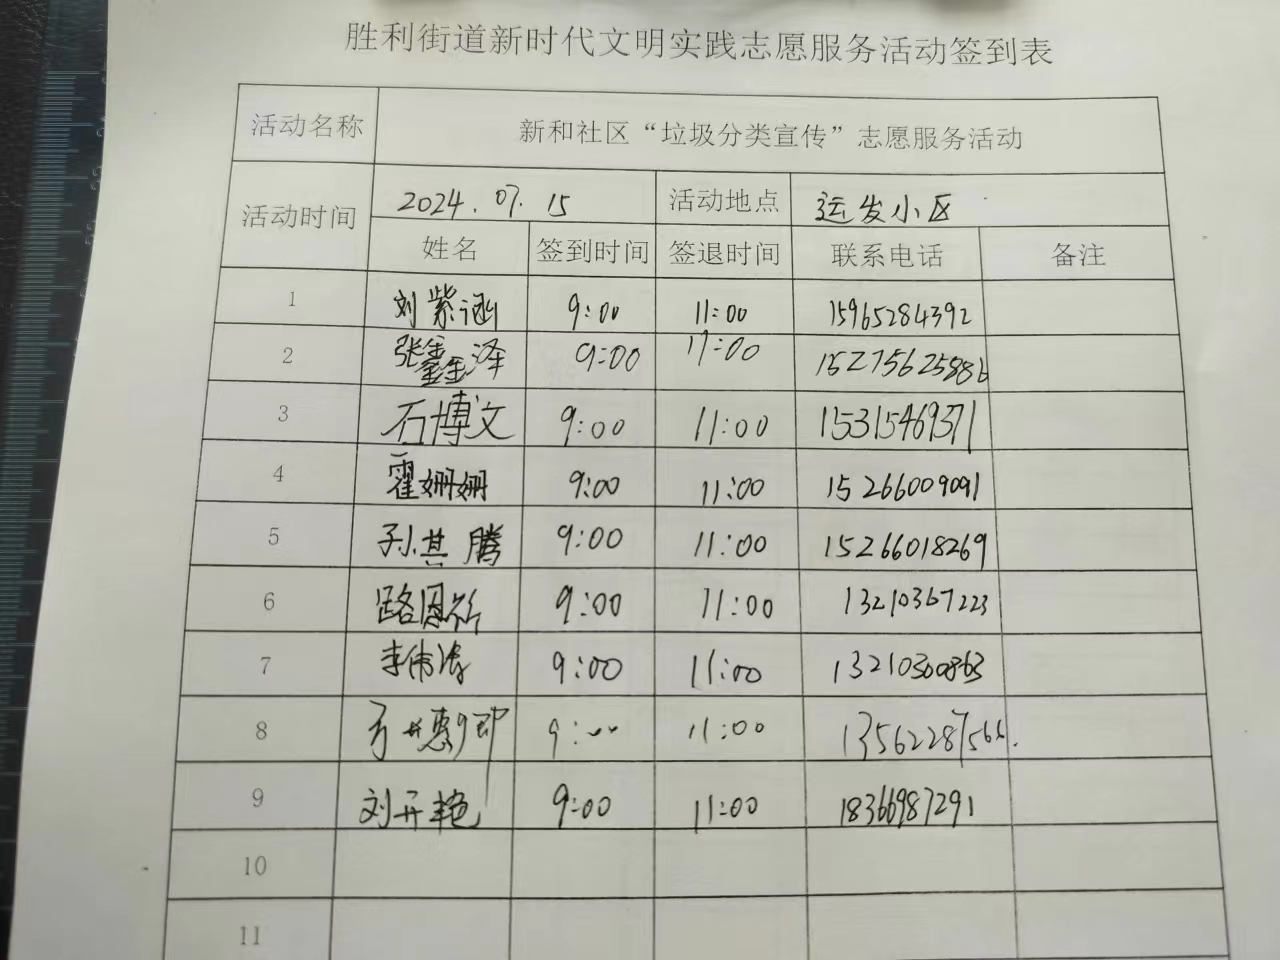 胜利街道新时代文明实践志愿服务活动签到表
活动名称 新和社区“垃圾分类宣传”志愿服务活动
活动时间 2024.07.15 活动地点 运发小区
姓名 签到时间 签退时间 联系电话 备注
1 刘紫涵 9:00 11:00 15965284392
2 张鑫泽 9:00 11:00 15275625886
3 石博文 9:00 11:00 15315469371
4 霍姗姗 9:00 11:00 15266009091
5 孙其腾 9:00 11:00 15266018269
6 路恩 9:00 11:00 13210367223
7 李伟涛 9:00 11:00 13210360863
8 9:00 11:00 13562287566.
9 刘开艳 9:00 11:00 18366987291
10
11